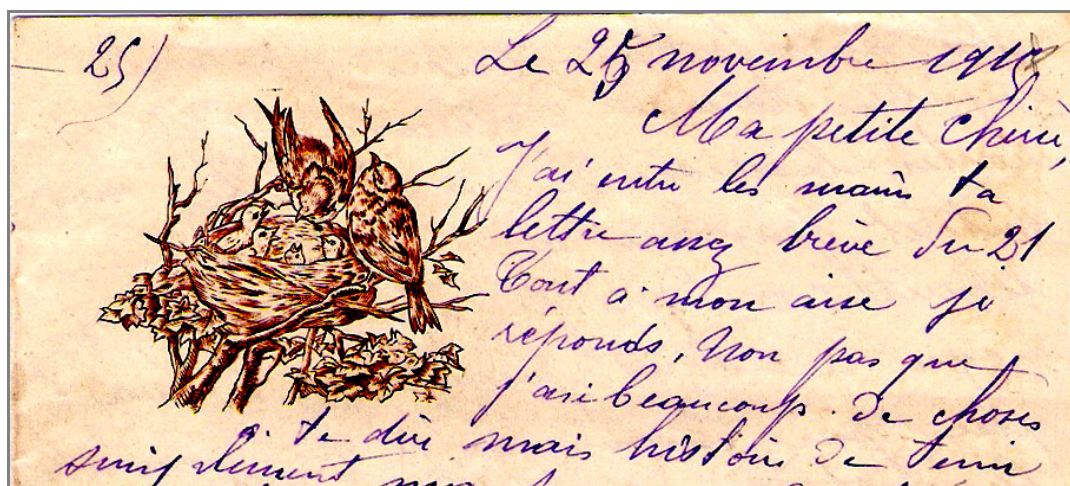 25)
Le 25 novembre 1915
Ma petite chérie,
J'ai entre les mains ta
lettre assez brève du 21
Tout à mon aise je
réponds, non pas que
j'aie beaucoup de choses
à te dire mais histoire de tenir
simplement